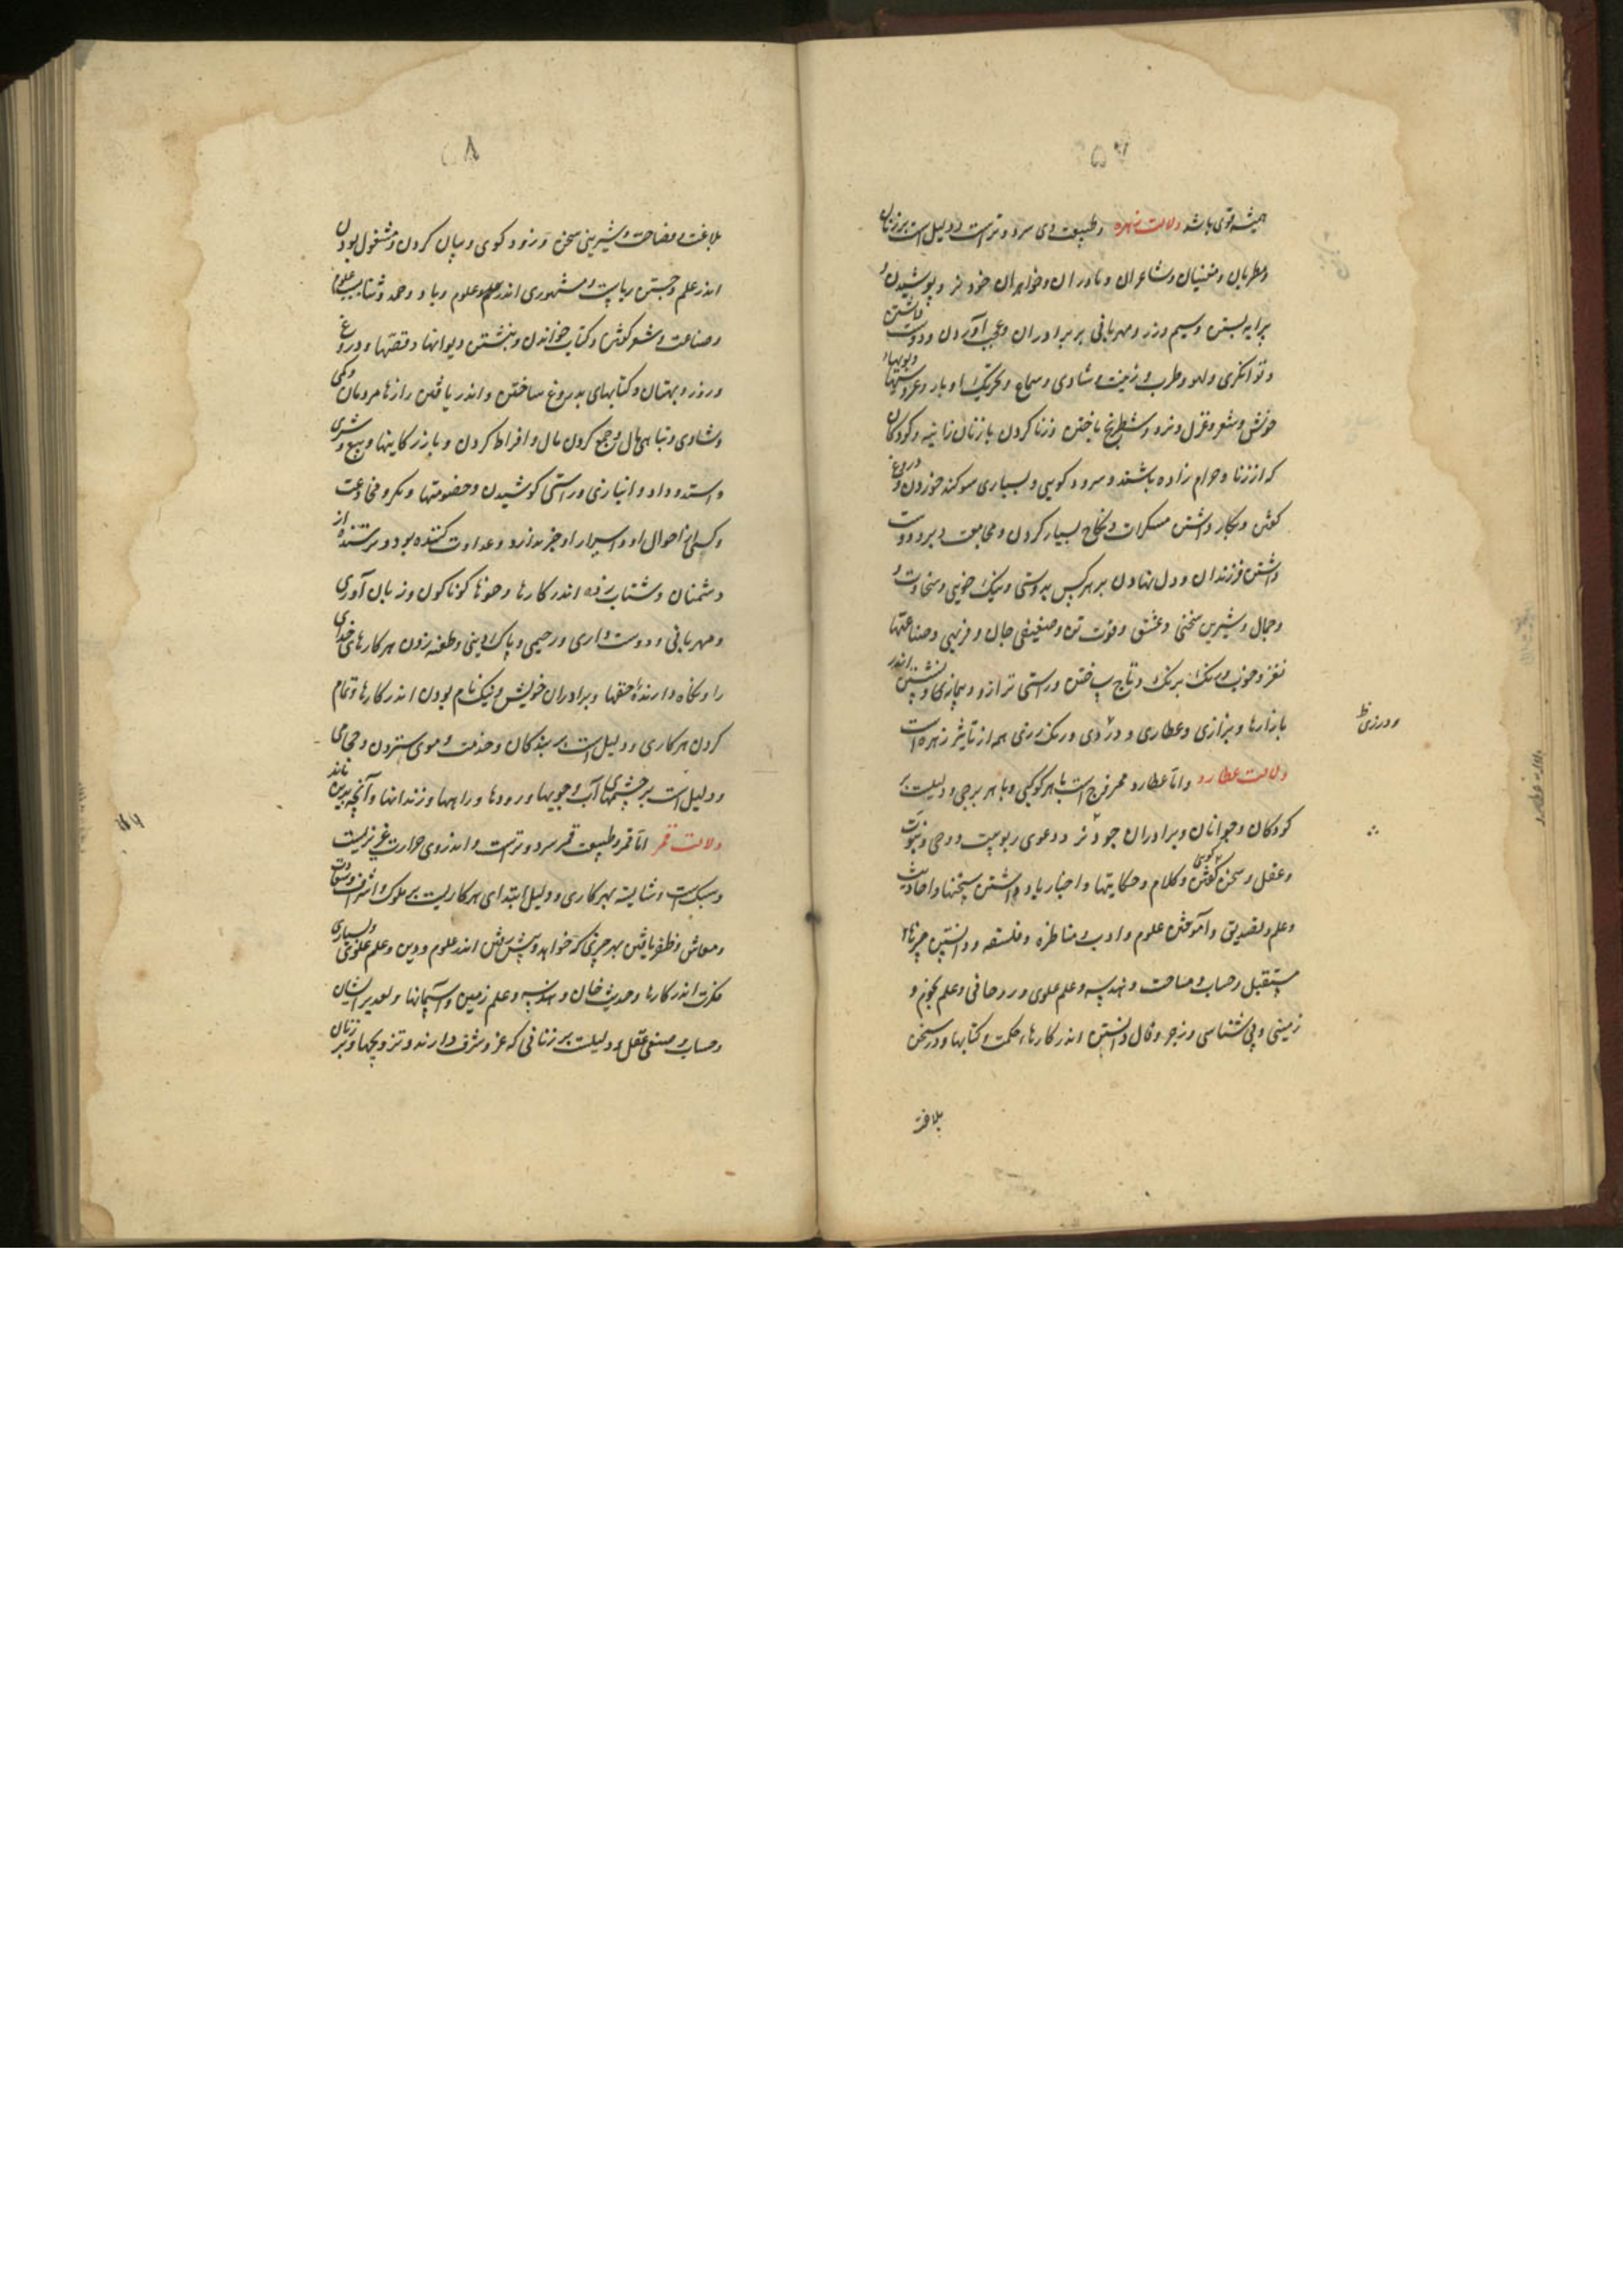 همیشه قوی باشد دلالت زهره و طبیعت وی سرد و تر است و دلیل است بر زنان
و مطربان و مغنیان و شاعران و مادران و خواهران خود تر و پوشیدن و
پیرایه بستن و سیم و زر و مهربانی بر برادران و عجب آوردن و دوست داشتن
و توانگری و لهو و طرب و زینت و شادی و سماع و تحریک و بار و عروسیها و بویهاء
خوش و شعر و غزل و نرد و شطرنج باختن و زنا کردن با زنان زانیه و کودکان
که از زنا و حرام زاده باشند و سرود گویی و بسیاری سوگند خوردن و دروغ
گفتن و بکار داشتن مسکرات و نکاح بسیار کردن و مجامعت دبر و دوست
داشتن فرزندان و دل نهادن بر هر کس بدوستی و نیک خویی و سخاوت و
و جمال و شیرین سخنی و عشق و قوت تن و ضعیفی جان و فربهی و صناعتها
نغز و خوب و رنگ برنگ و تاج ساختن و راستی ترازو و نشستن اندر
بازارها و بزازی و عطاری و درزدی و رنگ رزی همه از تاثیر زهره است
و درزی ظ
دلالت عطارد و اما عطارد ممزوج است با هر کوکبی و با هر برجی و دلیلست بر
کودکان و جوانان و برادران خود تر و دعوی ربوبیت و وحی و نبوت
و عقل و سخن گفتن گویی و کلام و حکایتها و اخبار یاد داشتن سخنها و احادیث
و علم و تصدیق و آموختن علوم و ادب و مناظره و فلسفه و دانستن چیزهاء
مستقبل و حساب و مساحت و هندسه و علم علوی و روحانی و علم نجوم و
زمینی و پی شناسی و زجر و فال دانستن اندر کارها و حکمت و کتابها و در سخن
بلاغت
۵۸
بلاغت و فصاحت و شیرینی سخن و زود گوی و بیان کردن و مشغول بودن
اندر علم و جستن ریاست و مشهوری اندر علم و علوم و یاد و حمد و ثنا بسبب علوم
و صناعت و شعر گفتن و کتاب خواندن و نبشتن دیوانها و قصتها و دروغ
و زور و بهتان و کتابهای بدروغ ساختن و اندر یافتن رازها مردمان و کمی
و شادی و تباهی مال و جمع کردن مال و افراط کردن و بازرگانیها و بیع و شری
و استد و داد و انبازی و راستی کوشیدن و خصومتها و مکر و مخادعت
و کسی از احوال او و اسرار او خبر ندارد و عداوت کننده بود و ترسنده از
دشمنان و شتاب زده اندر کارها و خوها گوناگون و زبان آوری
و مهربانی و دوست داری و رحیمی و پاک دینی و طعنه زدن هر کارهای خدای
را و نگاه دارندهٔ حقها و برادران خویش و نیک نام بودن اندر کارها و تمام
کردن هر کاری و دلیل است بر بندگان و خدمت و موی ستردن و حجامی
و دلیل است بر چشمهای آب و جویها و رودها و راهها و زندانها و آنچه بدین ماند
دلالت قمر اما قمر و طبیعت قمر سرد و تر است و اندر وی حرارت غریزیست
و سبک است و شایسته بهر کاری و دلیل ابتدای هر کاریست بر ملوک و اشراف و سعادت
و معاش و ظفر یافتن بهر چیزی که خواهد و پیش رفتن اندر علوم و دین و علم علوی و بسیاری
فکرت اندر کارها و حدیث خان و هندسه و علم زمین و آسمانها و تقدیر ایشان
و حساب و ضعیفی عقل و دلیلست بر زنانی که عز و شرف دارند و تزویجها و بر زنان